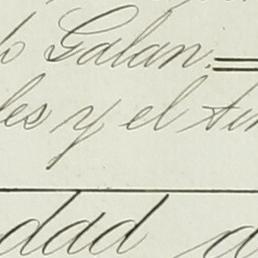 Galan.
les y el
dad